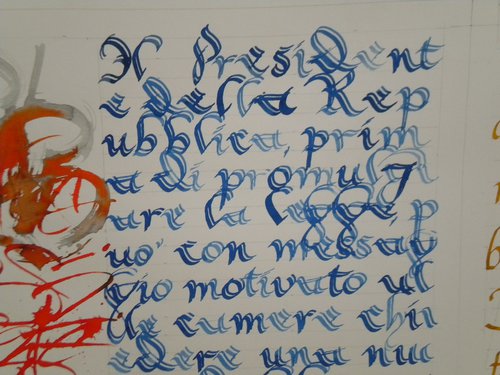 Il President
e della Rep
ubblica, prim
a di promulg
are la legge p
uo' con messag
gio motivato al
le camere chi
edere una nu